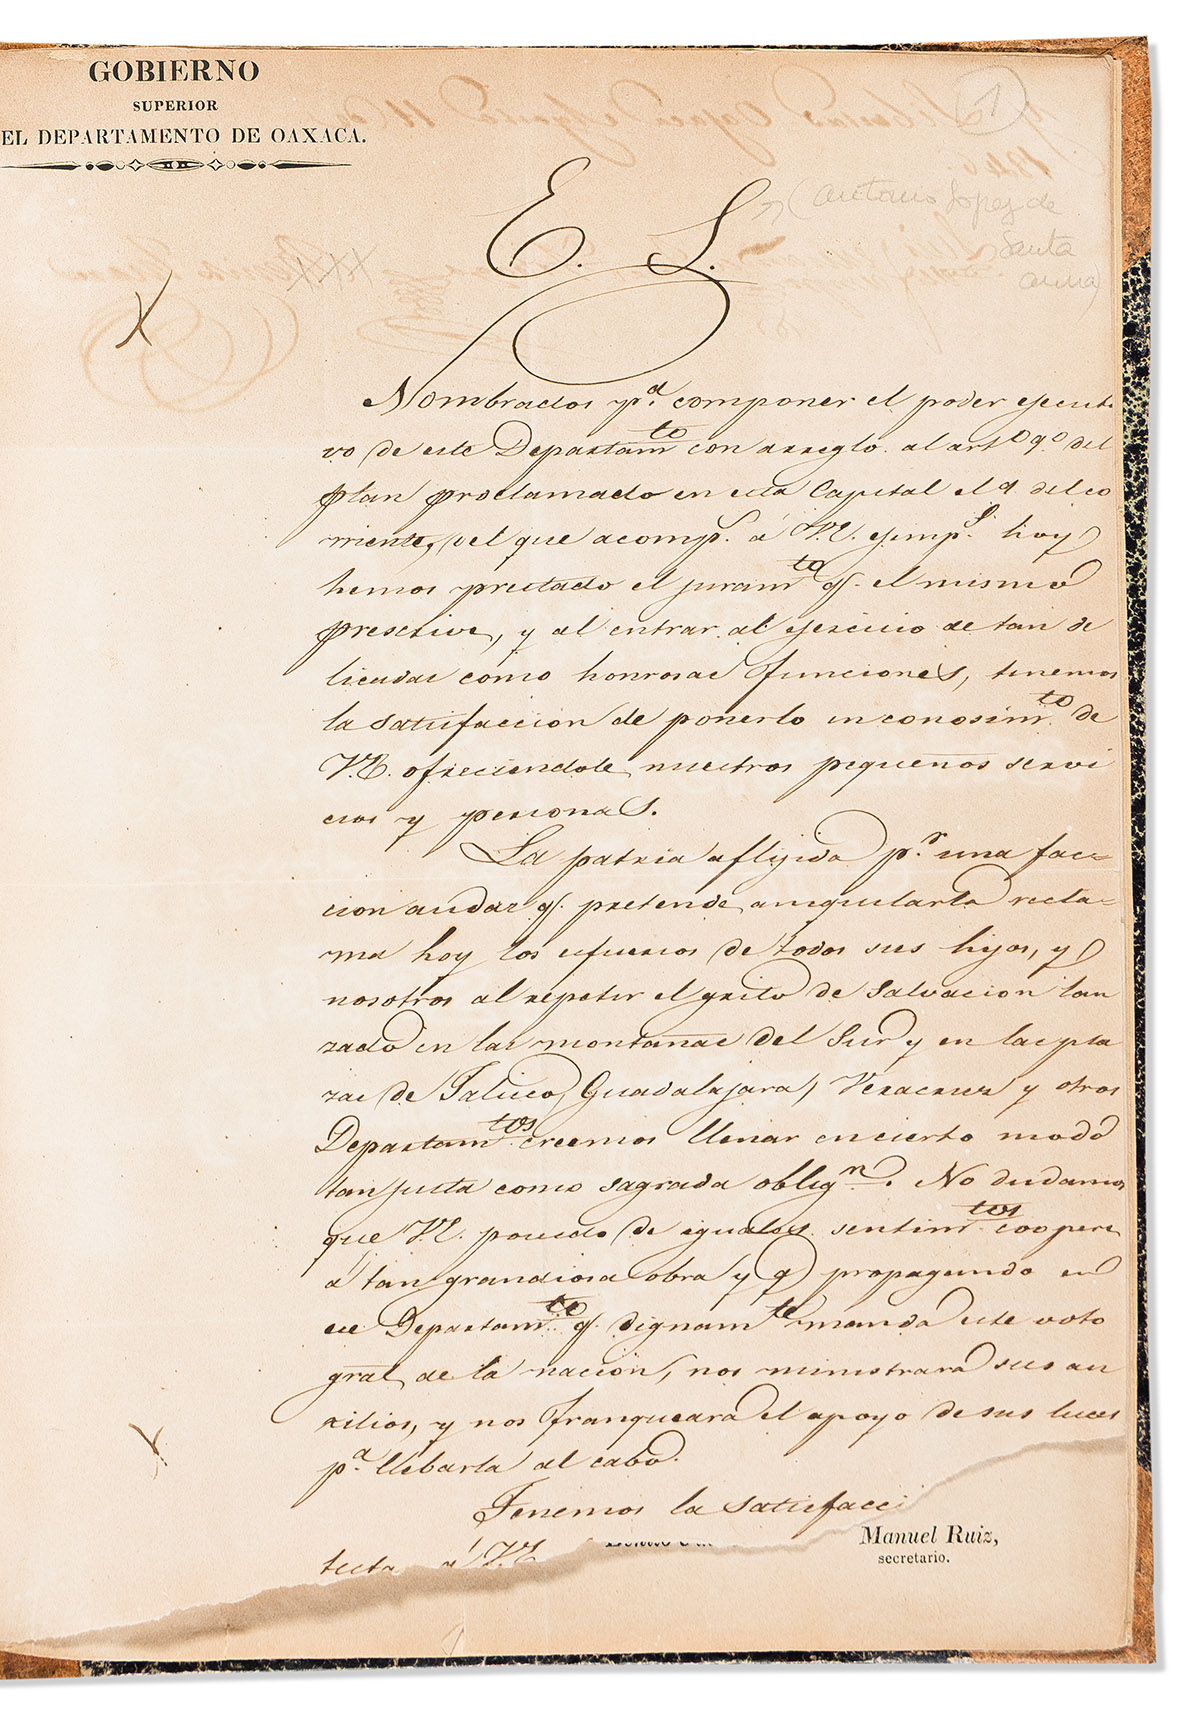 GOBIERNO
SUPERIOR
EL DEPARTAMENTO DE OAXACA.
1
E. S.
(Antonio Lopez de
Santa
Anna)
XXX
X
Nombrados pa. componer el poder ejecuti
vo de este Departamto. con arreglo al arto 9o del
plan proclamado en esta Capital el del co
rriente, del que acomps. á V.E. ejemps. hoy
hemos prestado el juramto q. el mismo
prescrive, y al entrar al ejercicio de tan de
licadas como honrosas funciones, tenemos
la satisfaccion de ponerlo en conosimto. de
V.E. ofreciendole nuestros pequeños servi
cios y personas.
La patria aflijida pr. una fac-
cion audaz q. pretende aniquilarla recla-
ma hoy los esfuerzos de todos sus hijos, y
nosotros al repetir el grito de salvacion lan
zado en las montañas del Sur y en las pla
zas de Jalisco, Guadalajara, Veracruz y otros
Departamtos. creemos llenar en cierto modo
tan justa como sagrada obligon. No dudamos
que V.E. poseido de iguales sentimtos. coopere
á tan grandiosa obra y q. propagando en
ese Departamto. q. dignamte. manda este voto
gral. de la nación, nos ministrará sus au
xilios, y nos franqueará el apoyo de sus luces
pa. llebarla al cabo.
Tenemos la satisfacci
testa á V.E
Manuel Ruiz,
secretario.